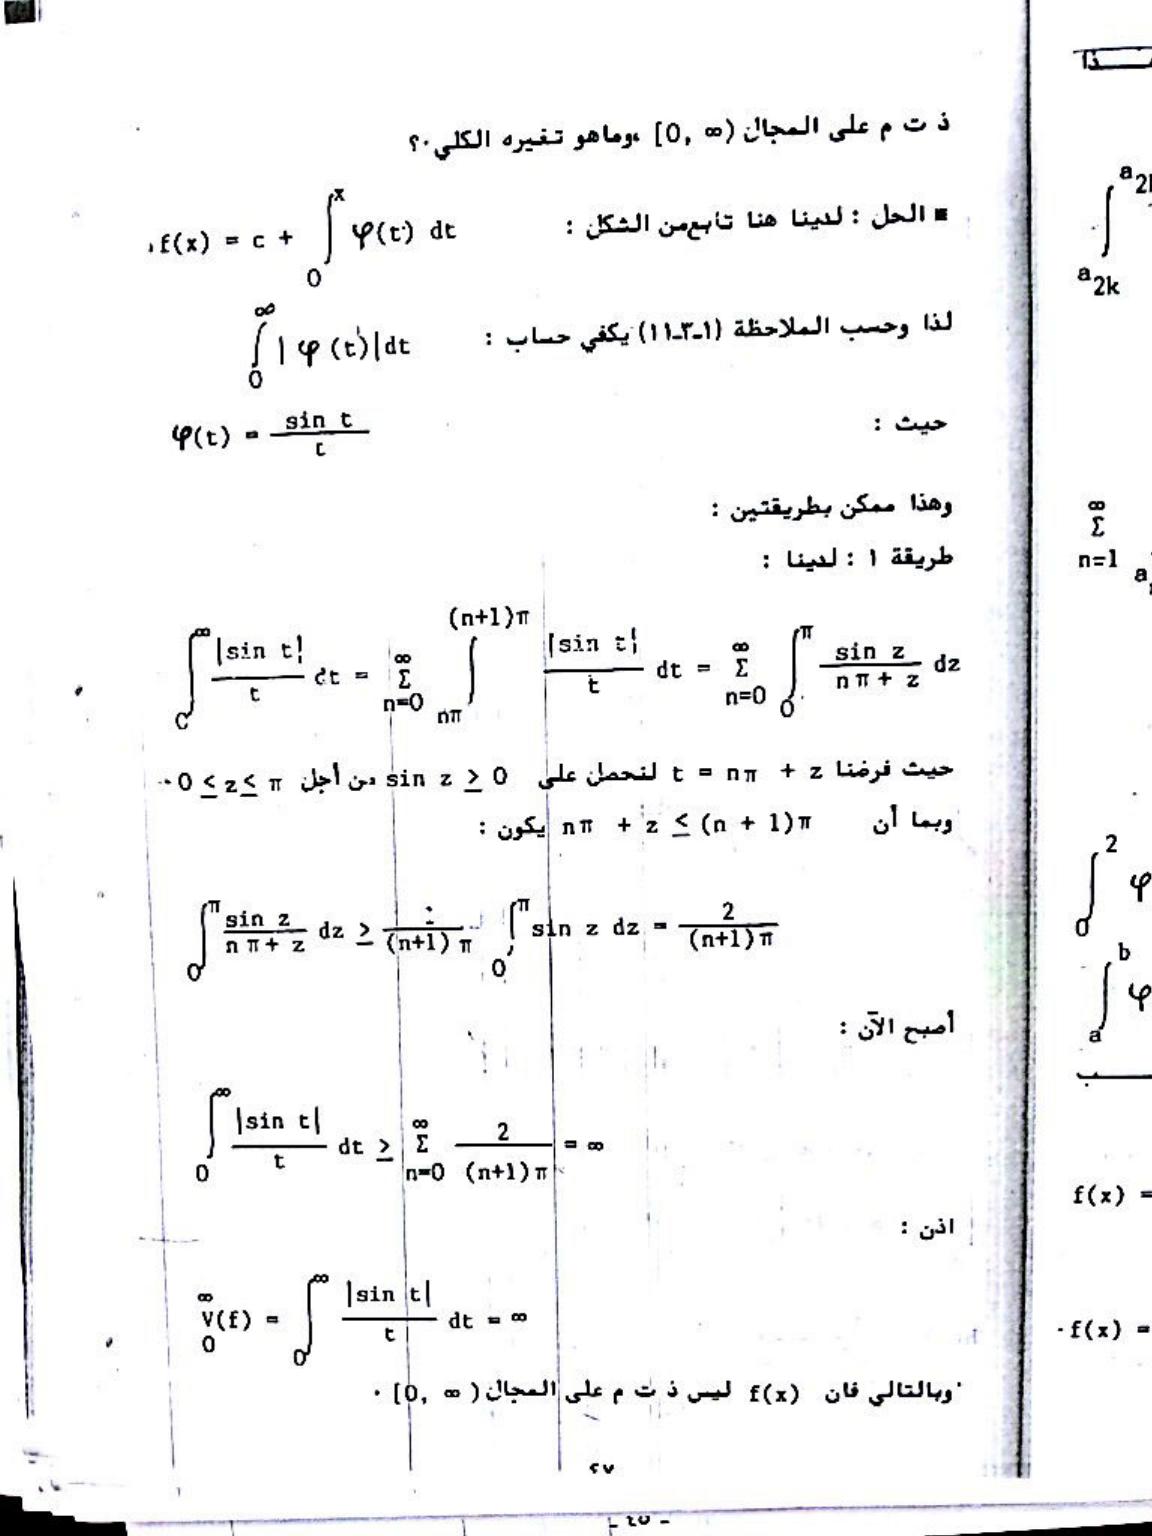 ذ ت م على المجال [0, ∞) ،وماهو تغيره الكلي ؟
■ الحل : لدينا هنا تابع من الشكل : f(x) = c + ∫₀ˣ φ(t) dt ،
لذا وحسب الملاحظة (١ـ٣ـ١١) يكفي حساب : ∫₀^∞ |φ(t)|dt
حيث : φ(t) = sin t / t
وهذا ممكن بطريقتين :
طريقة ١ : لدينا :
∫₀^∞ |sin t| / t dt = Σ_{n=0}^∞ ∫_{nπ}^{(n+1)π} |sin t| / t dt = Σ_{n=0}^∞ ∫₀^π sin z / (nπ + z) dz
حيث فرضنا t = nπ + z لنحصل على sin z ≥ 0 من أجل 0 ≤ z ≤ π ·
وبما أن nπ + z ≤ (n + 1)π يكون :
∫₀^π sin z / (nπ + z) dz ≥ 1 / (n+1)π ∫₀^π sin z dz = 2 / (n+1)π
أصبح الآن :
∫₀^∞ |sin t| / t dt ≥ Σ_{n=0}^∞ 2 / (n+1)π = ∞
اذن :
V₀^∞(f) = ∫₀^∞ |sin t| / t dt = ∞
وبالتالي فان f(x) ليس ذ ت م على المجال [0, ∞) ·
a₂ₖ
∞
Σ
n=1
2
∫ φ
0
b
∫ φ
a
f(x) =
f(x) =